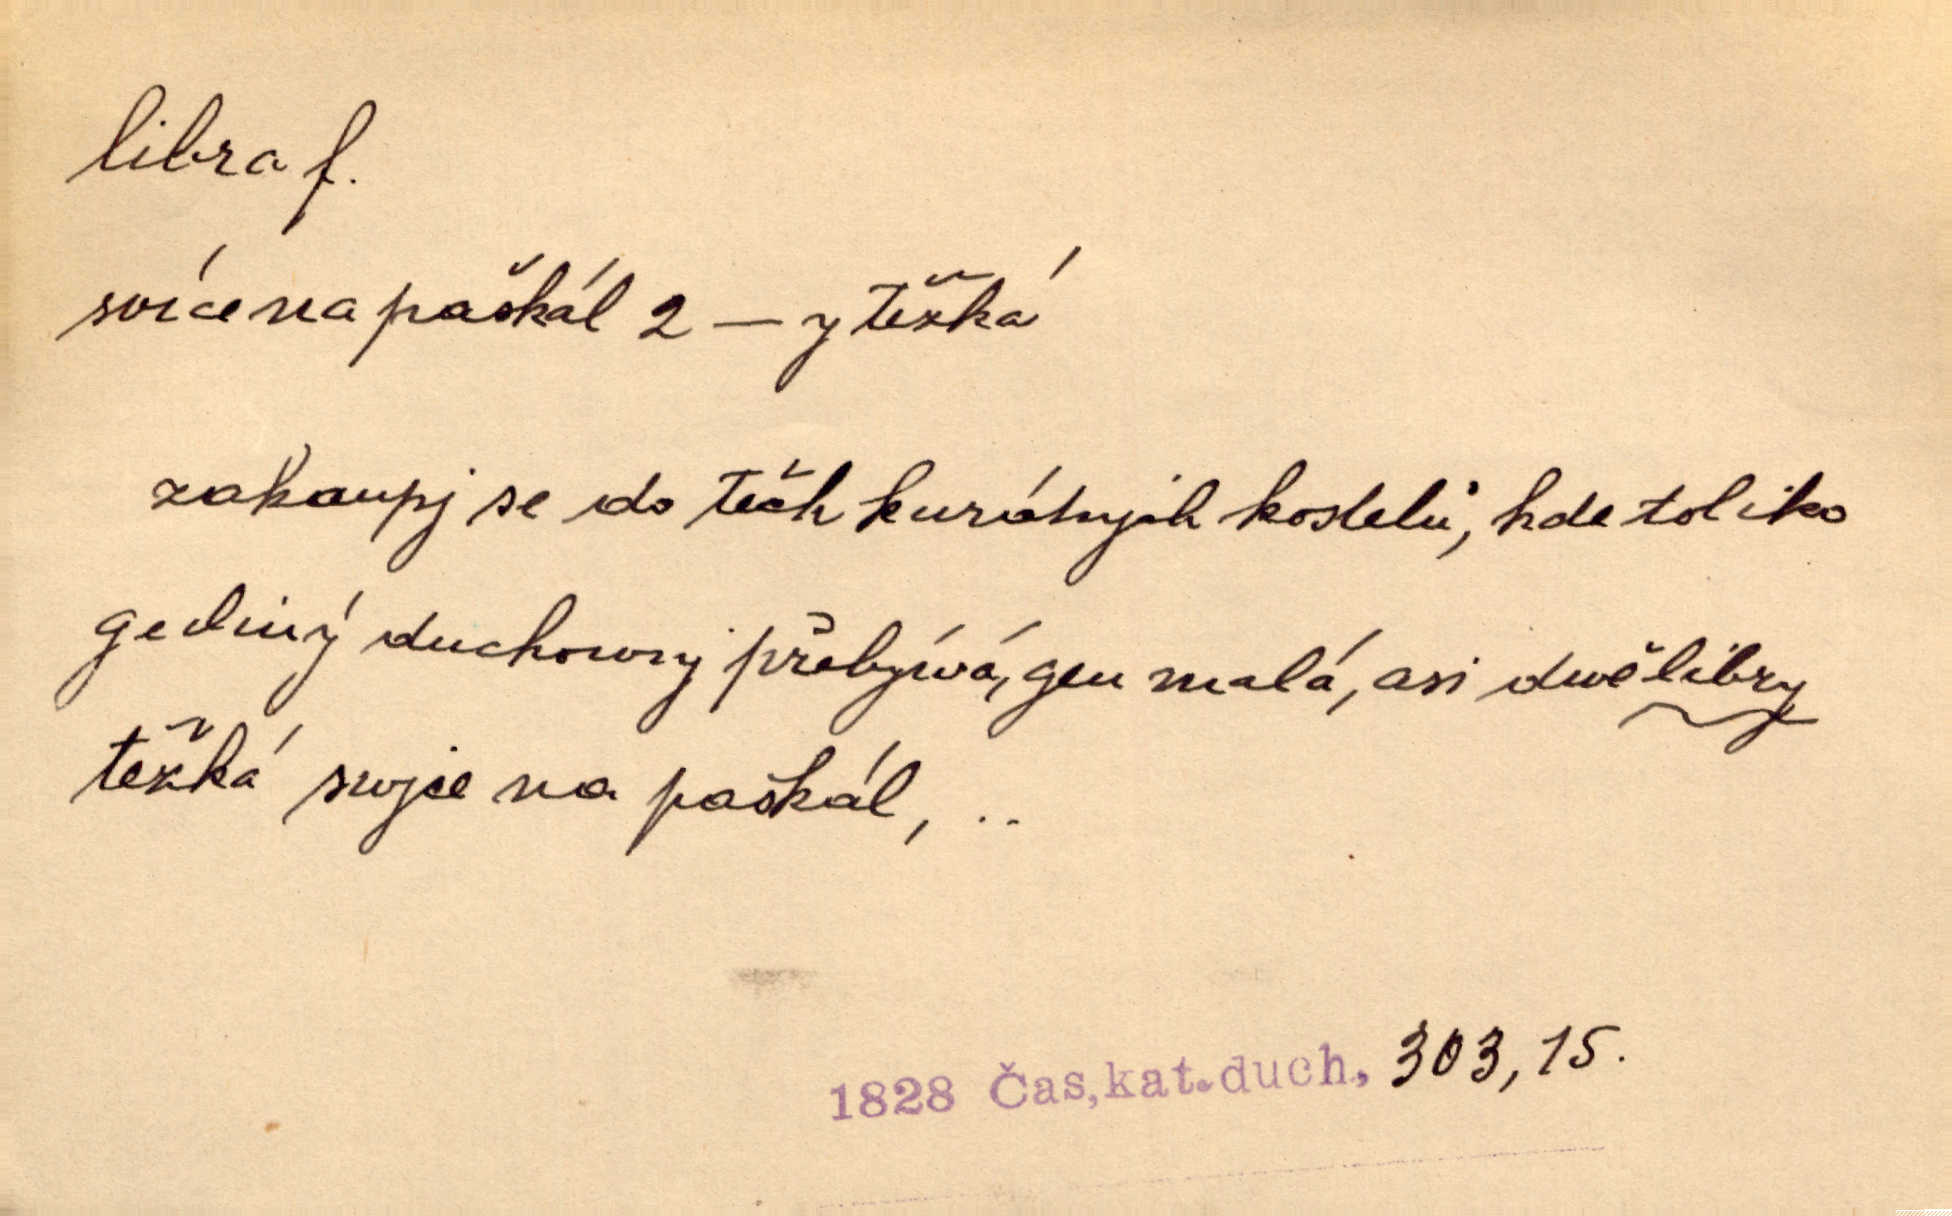 libra f.
svíce na paškál 2 — y těžká
zakaupj se do těch kurátnjch kostelů, kde toliko
gediný duchownj přebývá, gen malá, asi dwě libry
těžká swjce na paškál, ..
1828 Čas,kat.duch, 303, 15.